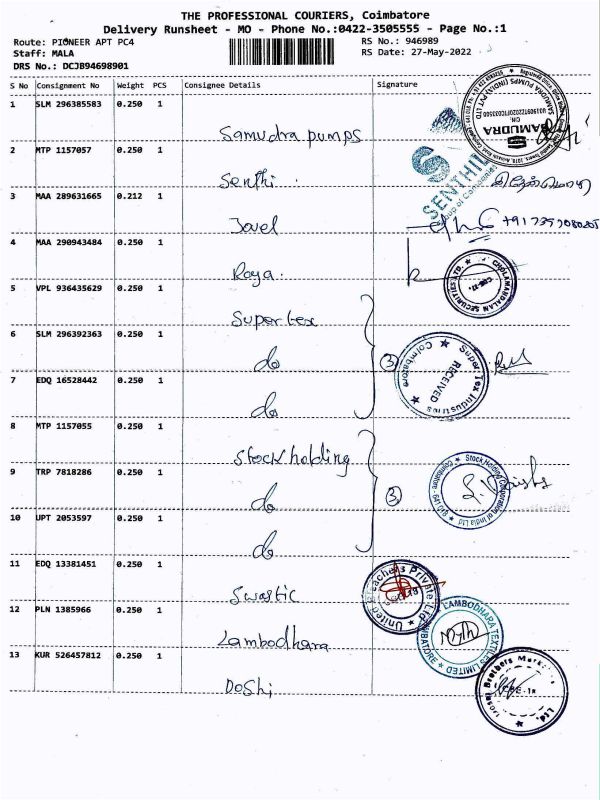 THE PROFESSIONAL COURIERS, Coimbatore
Delivery Runsheet - MO - Phone No.:0422-3505555 - Page No.:1
Route: PIONEER APT PC4
RS No.: 946989
Staff: MALA
RS Date: 27-May-2022
DRS No.: DCJB94698901
S No Consignment No Weight PCS Consignee Details Signature
1 SLM 296385583 0.250 1
Samudra pumps
SAMUDRA PUMPS (INDIA) PVT LTD
SAMUDRA
2 MTP 1157057 0.250 1
Senthi.
SENTHIL
Group of Companies
3 MAA 289631665 0.212 1
Jovel
4 MAA 290943484 0.250 1
Roya.
CHOLAMANDALAM SECURITIES LTD.
5 VPL 936435629 0.250 1
Supertex
6 SLM 296392363 0.250 1
do
3
Super Tex Industries
RECEIVED
Coimbatore
7 EDQ 16528442 0.250 1
do
8 MTP 1157055 0.250 1
Stock holding
9 TRP 7818286 0.250 1
do
3
Stock Holding Corporation of India Ltd
Coimbatore - 641 018
10 UPT 2053597 0.250 1
do
11 EDQ 13381451 0.250 1
Swastic
United Bleachers Private Ltd
12 PLN 1385966 0.250 1
Lambodhara
LAMBODHARA TEXTILES LIMITED
13 KUR 526457812 0.250 1
Doshi